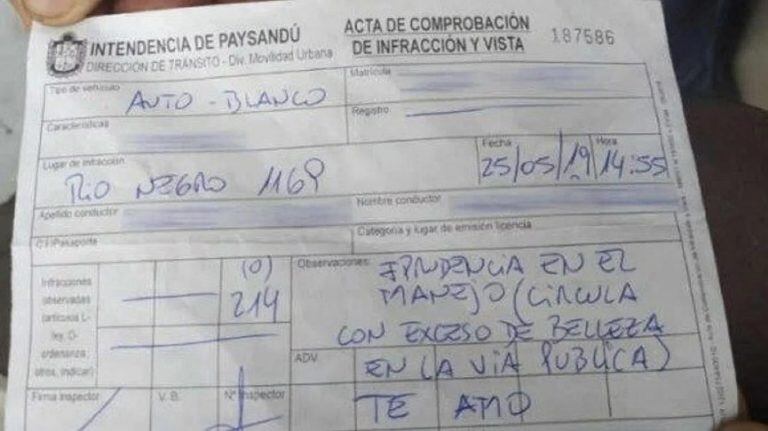 INTENDENCIA DE PAYSANDÚ
DIRECCIÓN DE TRÁNSITO - Div. Movilidad Urbana
ACTA DE COMPROBACIÓN
DE INFRACCIÓN Y VISTA
187586
Tipo de vehículo
AUTO - BLANCO
Matrícula
Características
Registro
Lugar de infracción
RIO NEGRO 1169
Fecha
25/05/19
Hora
14:55
Apellido conductor
Nombre conductor
C.I/Pasaporte
Categoría y lugar de emisión licencia
Infracciones
observadas
(artículos L-
ley, O-
ordenanza,
otros, indicar)
(O)
214
Observaciones
EN EL
MANEJO (CIRCULA
CON EXCESO DE BELLEZA
EN LA VIA PUBLICA)
ADV
TE AMO
Firma Inspector
V. B.
Nº Inspector